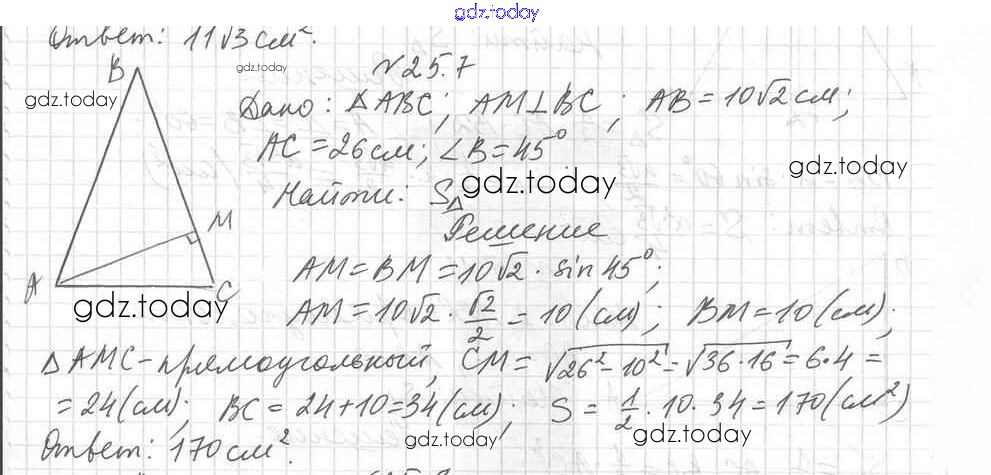 gdz.today
Ответ: 11√3 см².
gdz.today
№25.7
B
gdz.today
Дано: △ABC; AM⊥BC; AB=10√2 см;
AC=26 см; ∠B=45°
gdz.today
Найти: S△
gdz.today
Решение
M
AM=BM=10√2 · sin 45°;
A C
gdz.today
AM=10√2 · √2/2 = 10 (см); BM=10 (см);
△AMC-прямоугольный, CM = √26²-10² = √36·16 = 6·4 =
= 24 (см); BC = 24+10=34 (см); S = 1/2 · 10 · 34 = 170 (см²)
gdz.today
gdz.today
Ответ: 170 см².